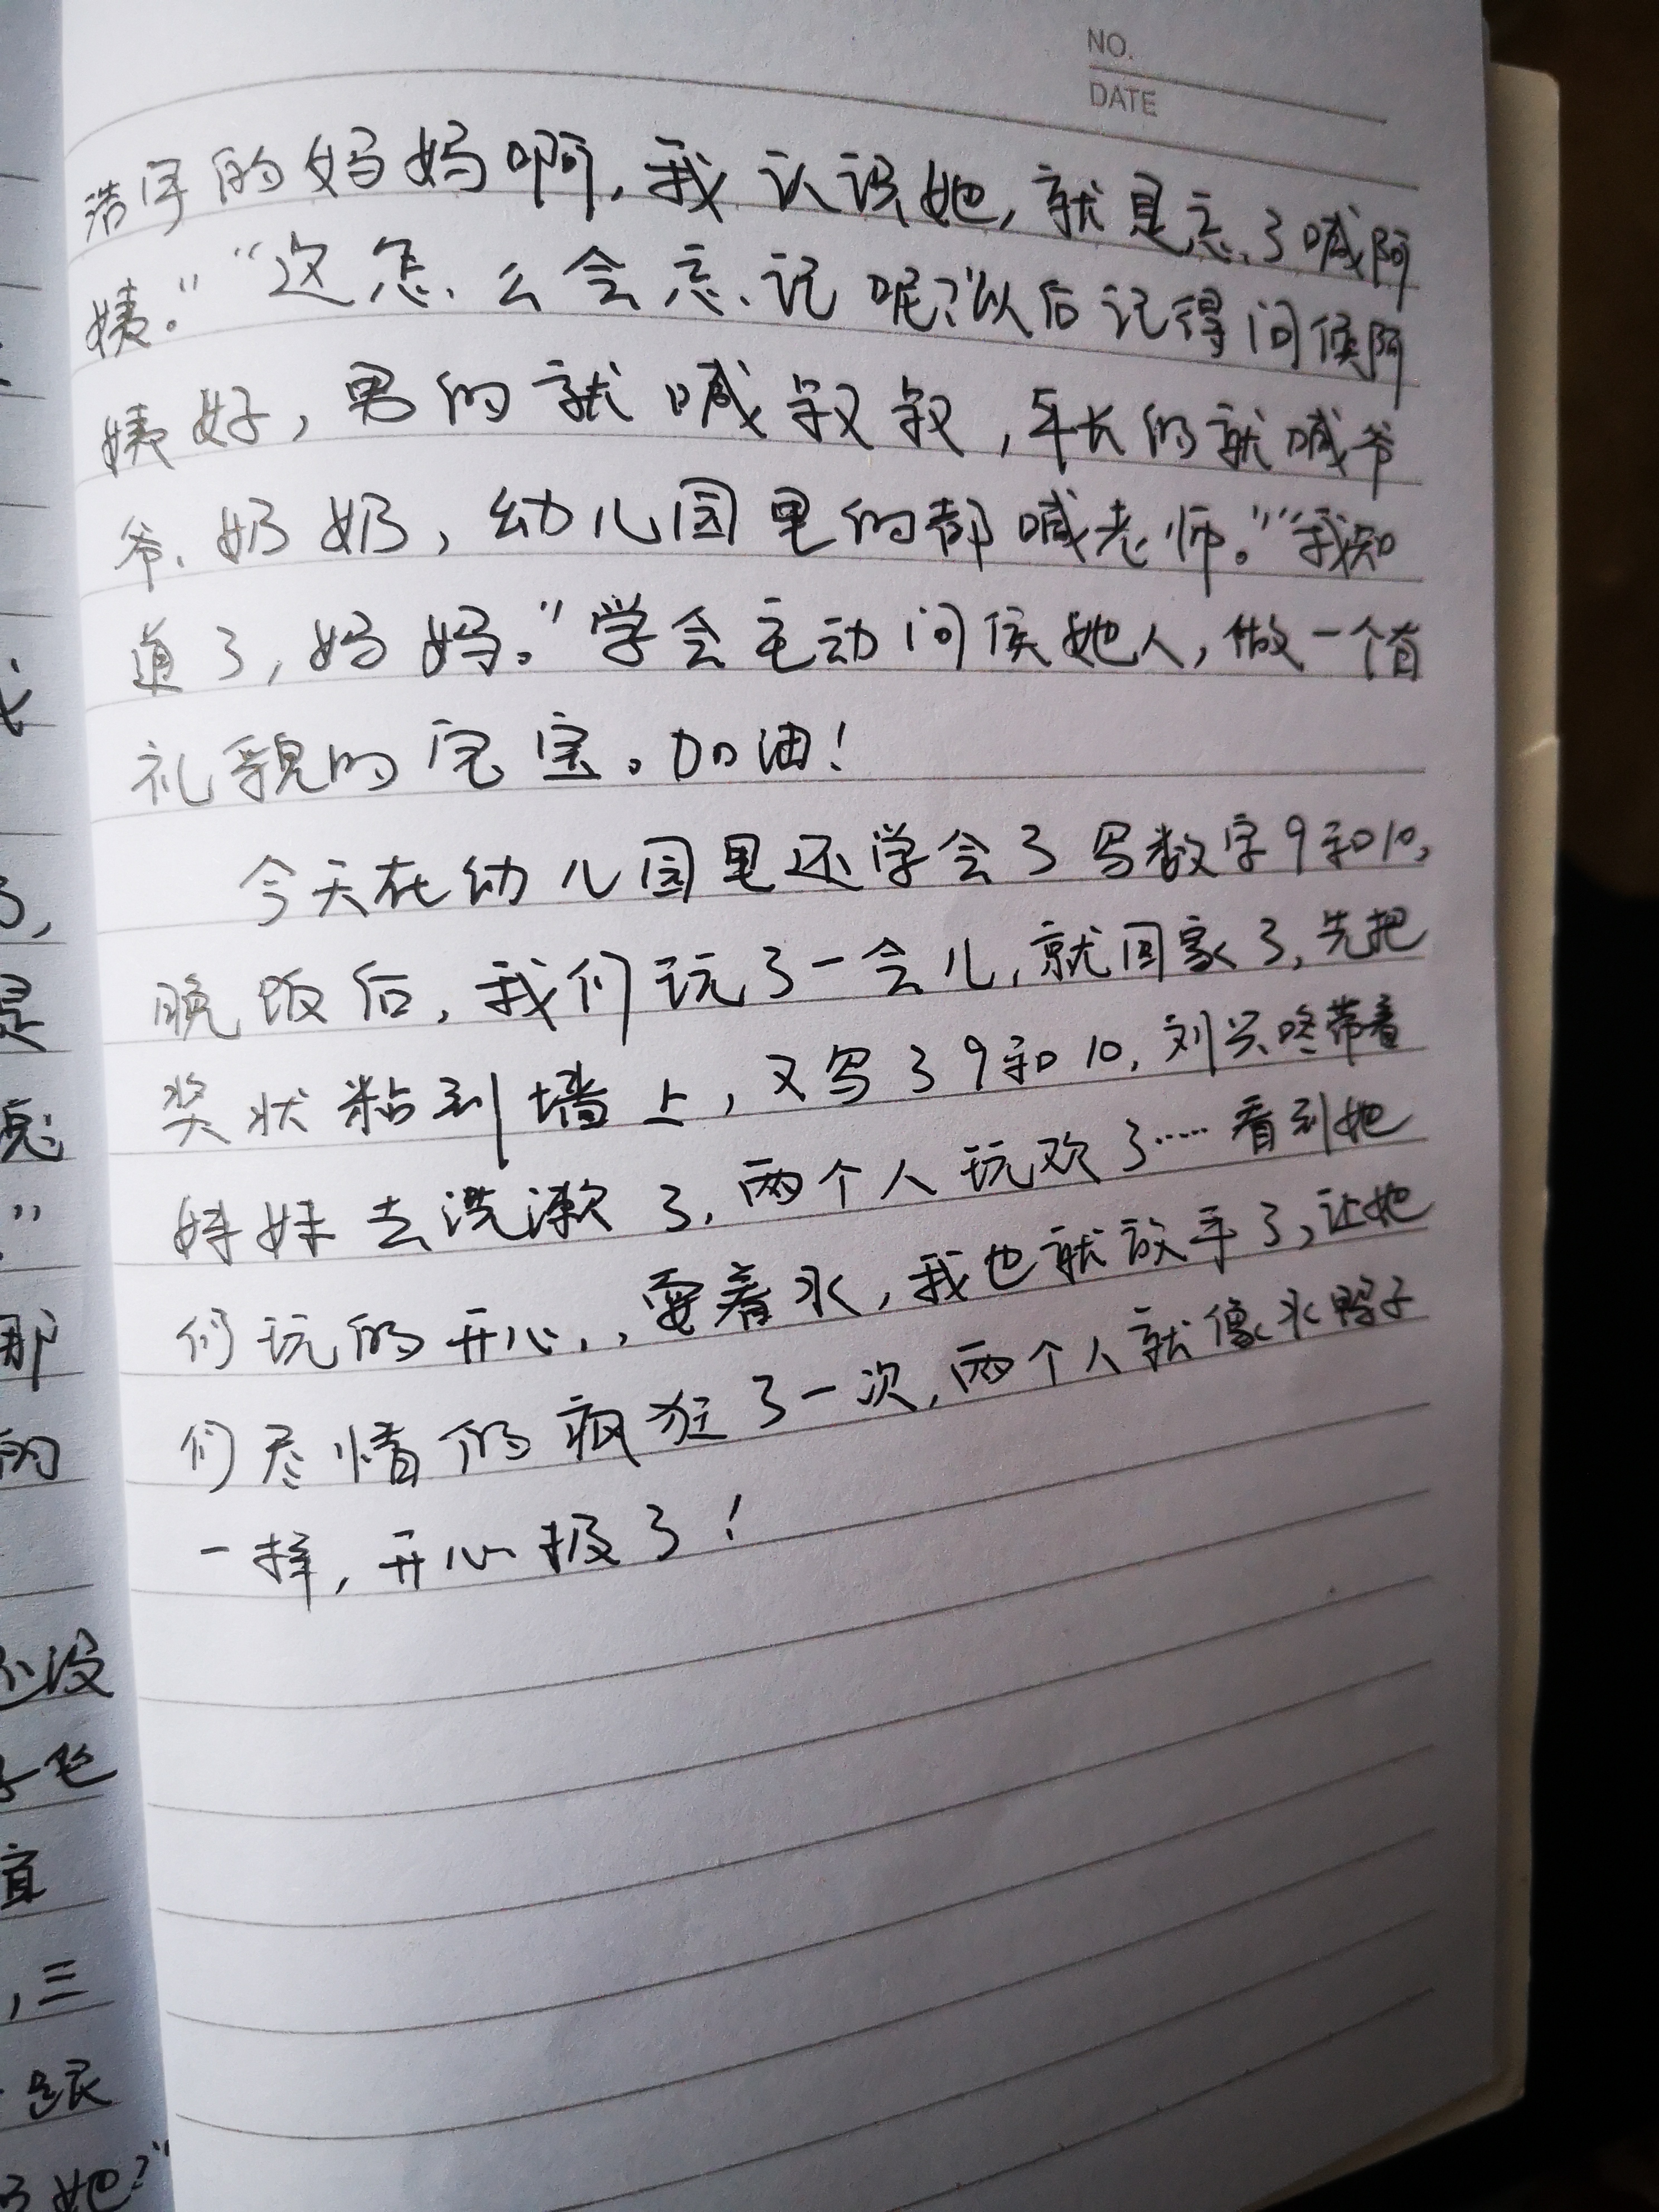 NO.
DATE
浩宇的妈妈啊，我认识她，就是忘了喊阿
姨。”“这怎么会忘记呢？以后记得问候阿
姨好，男的就喊叔叔，年长的就喊爷
爷、奶奶，幼儿园里的都喊老师。”“我知
道了，妈妈。”学会主动问候她人，做一个有
礼貌的宝宝。加油！
今天在幼儿园里还学会了写数字9和10，
晚饭后，我们玩了一会儿，就回家了，先把
奖状粘到墙上，又写了9和10，刘兴咚带着
妹妹去洗漱了，两个人玩欢了……看到她
们玩的开心，，耍着水，我也就放手了，让她
们尽情的疯狂了一次，两个人就像水鸭子
一样，开心极了！
，
是
”
那
的
还没
子飞
宜
，三
跟
她？”